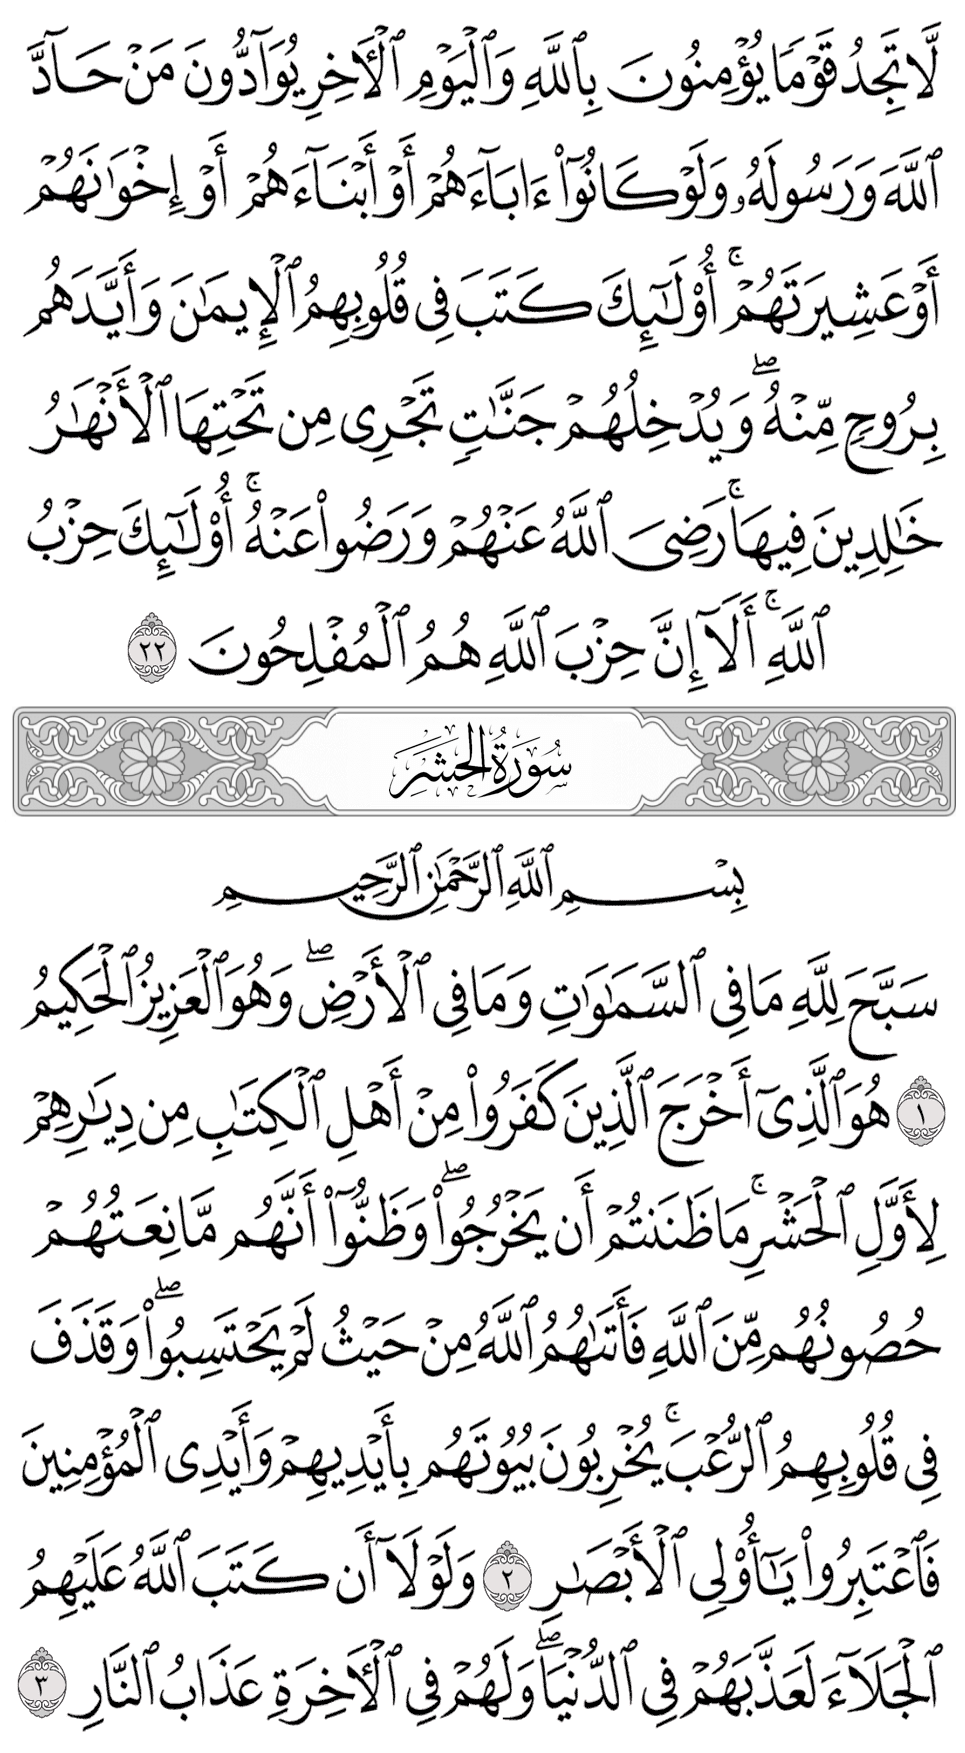 لَّا تَجِدُ قَوْمًا يُؤْمِنُونَ بِٱللَّهِ وَٱلْيَوْمِ ٱلْـَٔاخِرِ يُوَآدُّونَ مَنْ حَآدَّ
ٱللَّهَ وَرَسُولَهُۥ وَلَوْ كَانُوٓا۟ ءَابَآءَهُمْ أَوْ أَبْنَآءَهُمْ أَوْ إِخْوَٰنَهُمْ
أَوْ عَشِيرَتَهُمْ ۚ أُو۟لَٰٓئِكَ كَتَبَ فِى قُلُوبِهِمُ ٱلْإِيمَٰنَ وَأَيَّدَهُم
بِرُوحٍ مِّنْهُ ۖ وَيُدْخِلُهُمْ جَنَّٰتٍ تَجْرِى مِن تَحْتِهَا ٱلْأَنْهَٰرُ
خَٰلِدِينَ فِيهَا ۚ رَضِىَ ٱللَّهُ عَنْهُمْ وَرَضُوا۟ عَنْهُ ۚ أُو۟لَٰٓئِكَ حِزْبُ
ٱللَّهِ ۚ أَلَآ إِنَّ حِزْبَ ٱللَّهِ هُمُ ٱلْمُفْلِحُونَ ٢٢
سُورَةُ الحَشْرِ
بِسْمِ ٱللَّهِ ٱلرَّحْمَٰنِ ٱلرَّحِيمِ
سَبَّحَ لِلَّهِ مَا فِى ٱلسَّمَٰوَٰتِ وَمَا فِى ٱلْأَرْضِ ۖ وَهُوَ ٱلْعَزِيزُ ٱلْحَكِيمُ
١ هُوَ ٱلَّذِىٓ أَخْرَجَ ٱلَّذِينَ كَفَرُوا۟ مِنْ أَهْلِ ٱلْكِتَٰبِ مِن دِيَٰرِهِمْ
لِأَوَّلِ ٱلْحَشْرِ ۚ مَا ظَنَنتُمْ أَن يَخْرُجُوا۟ ۖ وَظَنُّوٓا۟ أَنَّهُم مَّانِعَتُهُمْ
حُصُونُهُم مِّنَ ٱللَّهِ فَأَتَىٰهُمُ ٱللَّهُ مِنْ حَيْثُ لَمْ يَحْتَسِبُوا۟ ۖ وَقَذَفَ
فِى قُلُوبِهِمُ ٱلرُّعْبَ ۚ يُخْرِبُونَ بُيُوتَهُم بِأَيْدِيهِمْ وَأَيْدِى ٱلْمُؤْمِنِينَ
فَٱعْتَبِرُوا۟ يَٰٓأُو۟لِى ٱلْأَبْصَٰرِ ٢ وَلَوْلَآ أَن كَتَبَ ٱللَّهُ عَلَيْهِمُ
ٱلْجَلَآءَ لَعَذَّبَهُمْ فِى ٱلدُّنْيَا ۖ وَلَهُمْ فِى ٱلْـَٔاخِرَةِ عَذَابُ ٱلنَّارِ ٣